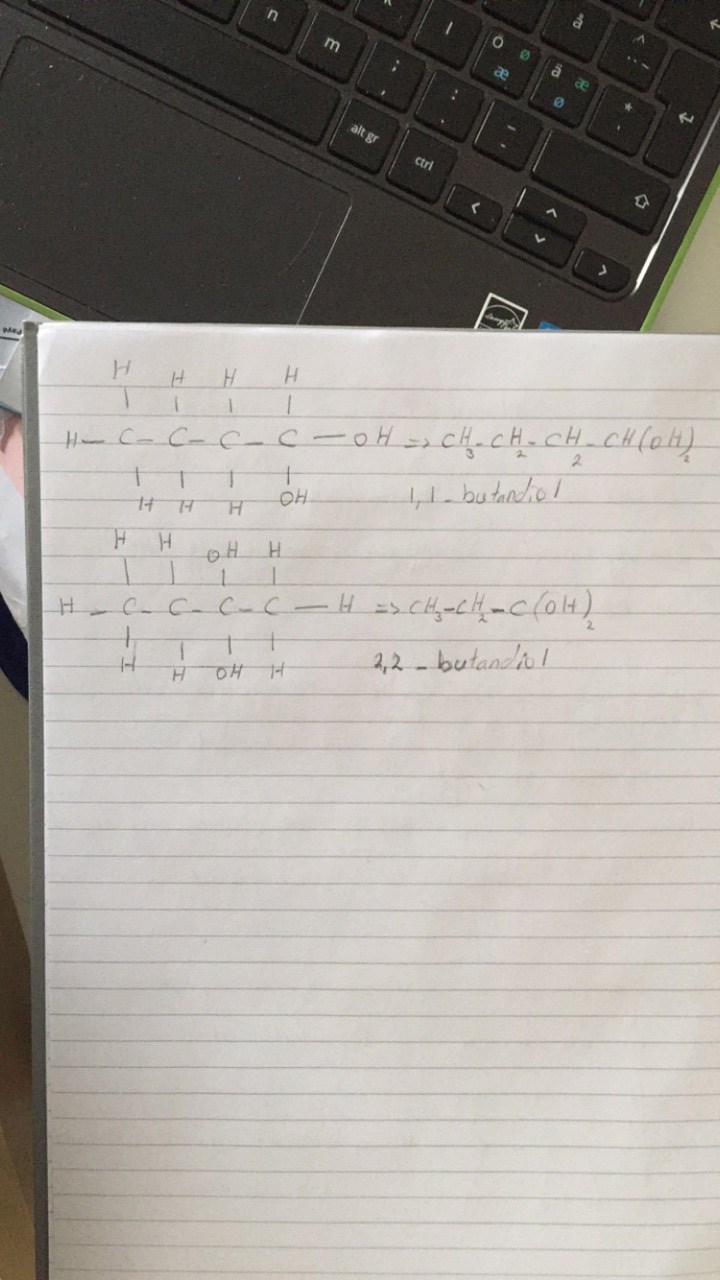 n m k l Ö Ø æ å ä æ ø ^ ¨ ~ * '
; ,
: .
_ -
alt gr
ctrl
H H H H
H – C – C – C – C – OH => CH₃-CH₂-CH₂-CH(OH)₂
H H H OH 1,1-butandiol
H H OH H
H – C – C – C – C – H => CH₃-CH₂-C(OH)₂
H H OH H 2,2-butandiol